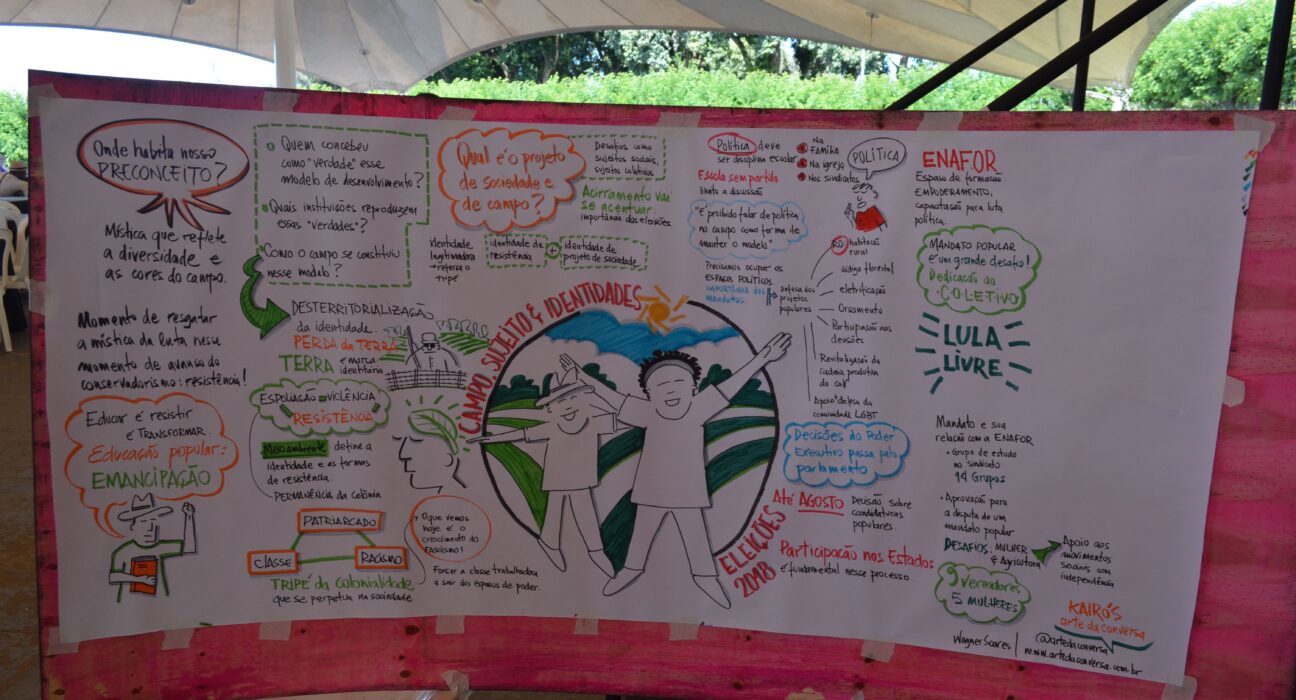 Onde habita nosso
PRECONCEITO?
Mística que reflete
a diversidade e
as cores do campo.
Momento de resgatar
a mística da luta nesse
momento de avanço do
conservadorismo: resistência!
Educar é resistir
é TRANSFORMAR.
Educação popular:
EMANCIPAÇÃO
Quem concebeu
como "verdade" esse
modelo de desenvolvimento?
Quais instituições reproduzem
essas "verdades"?
Como o campo se constituiu
nesse modelo?
DESTERRITORIALIZAÇÃO
da identidade.
PERDA da TERRA
TERRA é marca
identitária
ESPOLIAÇÃO = VIOLÊNCIA
RESISTÊNCIA
Meio ambiente define a
identidade e as formas
de resistência.
PERMANÊNCIA da Colônia
PATRIARCADO
CLASSE
RACISMO
TRIPÉ da colonialidade
que se perpetua na sociedade
Qual é o projeto
de sociedade e
de campo?
Desafios como
sujeitos sociais,
sujeitos coletivos
Acirramento vai
se acentuar:
importância das eleições
identidade
legitimadora
→ reforça o
tripé
identidade de
resistência
+
identidade de
projeto de sociedade
CAMPO, SUJEITO & IDENTIDADES
O que vemos
hoje é o
crescimento do
FASCISMO!
Forçar a classe trabalhadora
a sair dos espaços de poder.
ELEIÇÕES
2018
Política deve
ser disciplina escolar
Na
Família
Na igreja
Nos sindicatos
POLÍTICA
Escola sem partido
limita a discussão
"É proibido falar de política
no campo como forma de
manter o modelo"
Precisamos ocupar os
ESPAÇOS POLÍTICOS
IMPORTÂNCIA DOS
Mandatos
Defesa dos
projetos
populares
habitação
rural
código florestal
eletrificação
Orçamento
Participação nas
decisões
Revitalização da
cadeia produtiva
do café
Apoio e defesa da
comunidade LGBT
Decisões do Poder
Executivo passa pelo
parlamento
Até AGOSTO
Decisão sobre
candidaturas
populares.
Participação nos Estados
é fundamental nesse processo
ENAFOR
Espaço de formação
EMPODERAMENTO,
capacitação para luta
política.
MANDATO POPULAR
é um grande desafio!
Dedicação ao
COLETIVO
LULA
LIVRE
Mandato e sua
relação com a ENAFOR
• Grupo de estudo
no Sindicato
14 Grupos
• Aprovação para
a disputa de um
mandato popular
DESAFIOS: MULHER
& Agricultora
Apoio aos
movimentos
sociais com
independência
9 Vereadores
5 MULHERES
KAIRÓS
arte da conversa
Wagner Soares
@artedaconversa
www.artedaconversa.com.br